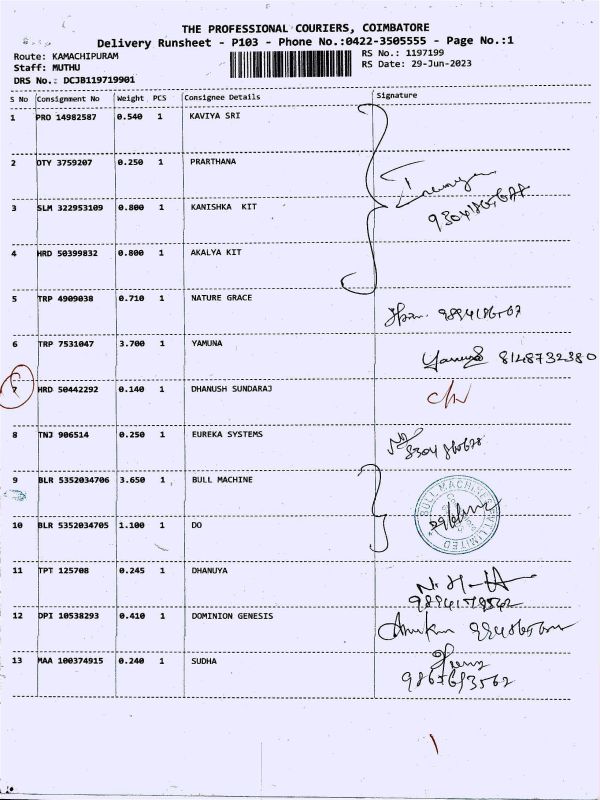 THE PROFESSIONAL COURIERS, COIMBATORE
Delivery Runsheet - P103 - Phone No.:0422-3505555 - Page No.:1
Route: KAMACHIPURAM RS No.: 1197199
Staff: MUTHU RS Date: 29-Jun-2023
DRS No.: DCJB119719901
S No Consignment No Weight PCS Consignee Details Signature
1 PRO 14982587 0.540 1 KAVIYA SRI
2 OTY 3759207 0.250 1 PRARTHANA
3 SLM 322953109 0.800 1 KANISHKA KIT
4 HRD 50399832 0.800 1 AKALYA KIT
5 TRP 4909038 0.710 1 NATURE GRACE
6 TRP 7531047 3.700 1 YAMUNA 8148732380
7 HRD 50442292 0.140 1 DHANUSH SUNDARAJ
8 TNJ 906514 0.250 1 EUREKA SYSTEMS
9 BLR 5352034706 3.650 1 BULL MACHINE
10 BLR 5352034705 1.100 1 DO
11 TPT 125708 0.245 1 DHANUYA
12 DPI 10538293 0.410 1 DOMINION GENESIS
13 MAA 100374915 0.240 1 SUDHA